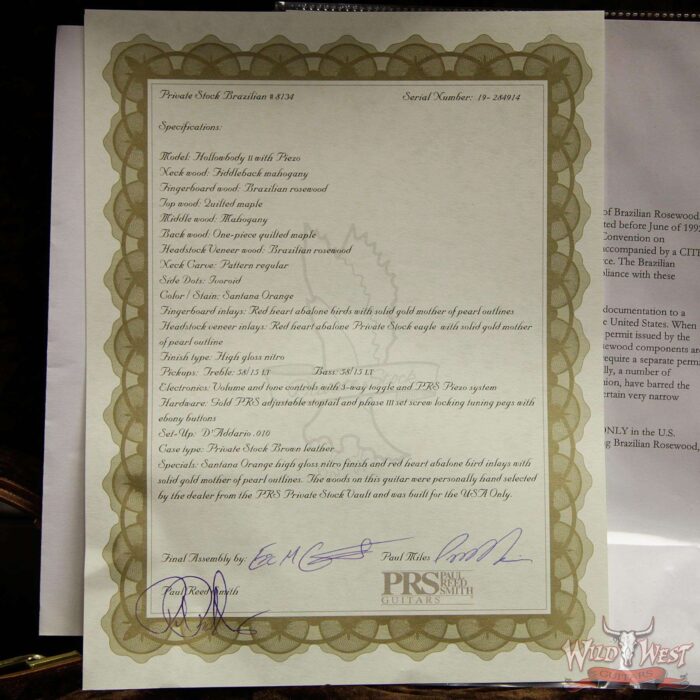 Private Stock Brazilian # 8134 Serial Number: 19- 284914
Specifications:
Model: Hollowbody II with Piezo
Neck wood: Fiddleback mahogany
Fingerboard wood: Brazilian rosewood
Top wood: Quilted maple
Middle wood: Mahogany
Back wood: One-piece quilted maple
Headstock Veneer wood: Brazilian rosewood
Neck Carve: Pattern regular
Side Dots: Ivoroid
Color / Stain: Santana Orange
Fingerboard inlays: Red heart abalone birds with solid gold mother of pearl outlines
Headstock veneer inlays: Red heart abalone Private Stock eagle with solid gold mother
of pearl outline
Finish type: High gloss nitro
Pickups: Treble: 58/15 LT Bass: 58/15 LT
Electronics: Volume and tone controls with 3-way toggle and PRS Piezo system
Hardware: Gold PRS adjustable stoptail and phase III set screw locking tuning pegs with
ebony buttons
Set-Up: D'Addario .010
Case type: Private Stock Brown leather
Specials: Santana Orange high gloss nitro finish and red heart abalone bird inlays with
solid gold mother of pearl outlines. The woods on this guitar were personally hand selected
by the dealer from the PRS Private Stock Vault and was built for the USA Only.
Final Assembly by: Paul Miles
Paul Reed Smith
PRS PAUL
REED
SMITH
GUITARS
of Brazilian Rosewood.
ted before June of 1992
Convention on
accompanied by a CITE
rce. The Brazilian
pliance with these
documentation to a
e United States. When
permit issued by the
sewood components are
require a separate permi
lly, a number of
nion, have barred the
ertain very narrow
ONLY in the U.S.
ng Brazilian Rosewood,
WILD WEST
GUITARS